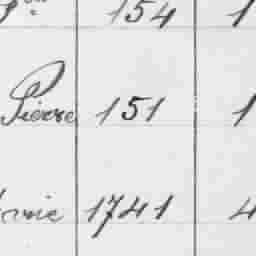 154 1
Pierre 151 1
1741 4